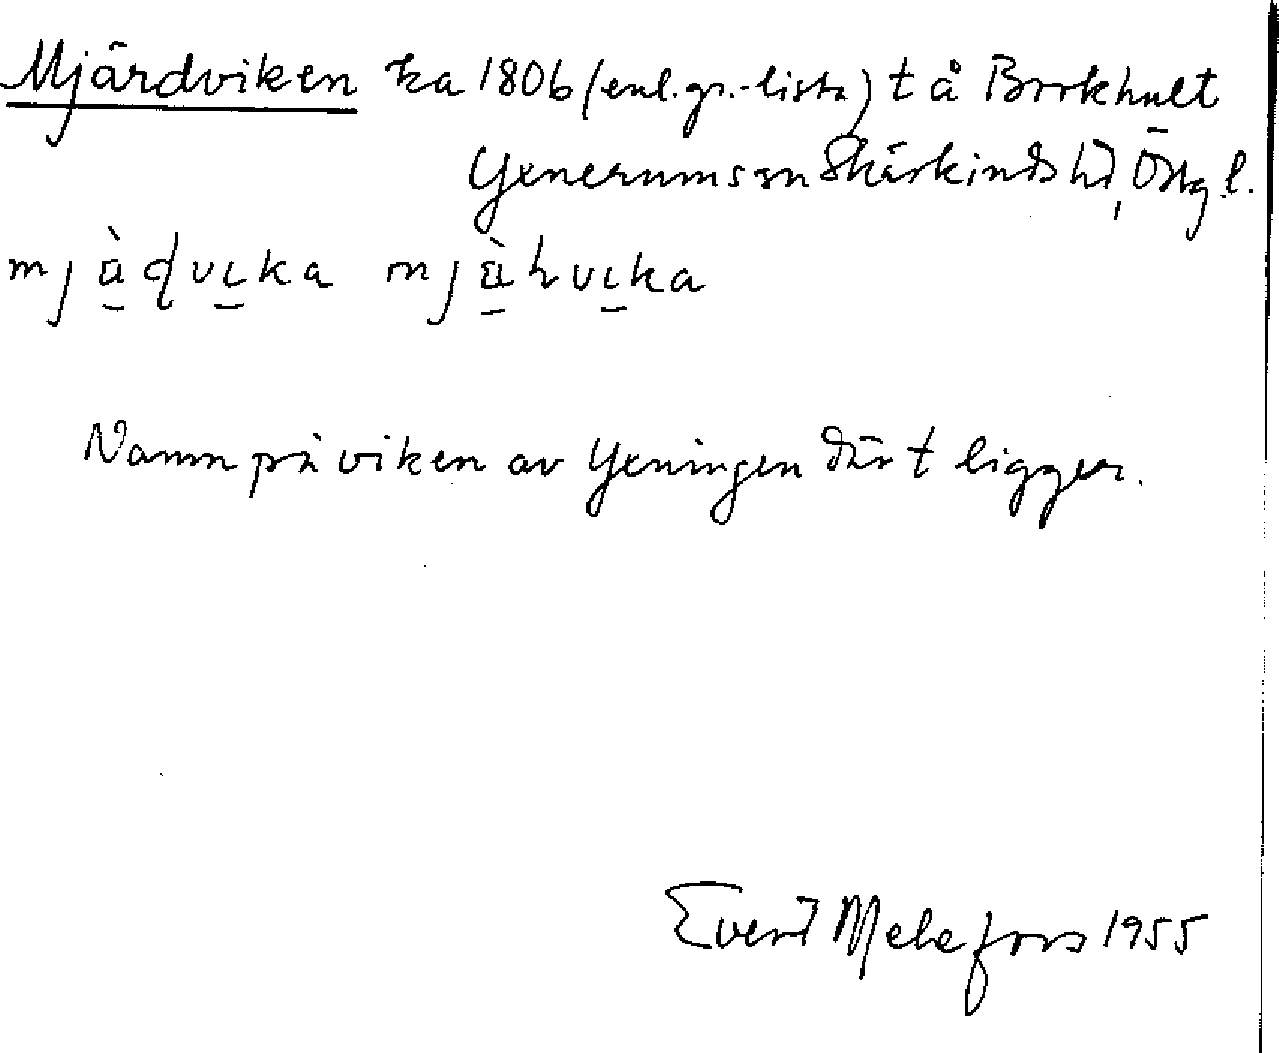 Mjärdviken ka 1806 (enl. gr.-lista) t å Borkhult
Yxnerums sn Skärkinds hd, Östg l.
Namn på viken av Yxningen där t ligger.
Evert Melefors 1955